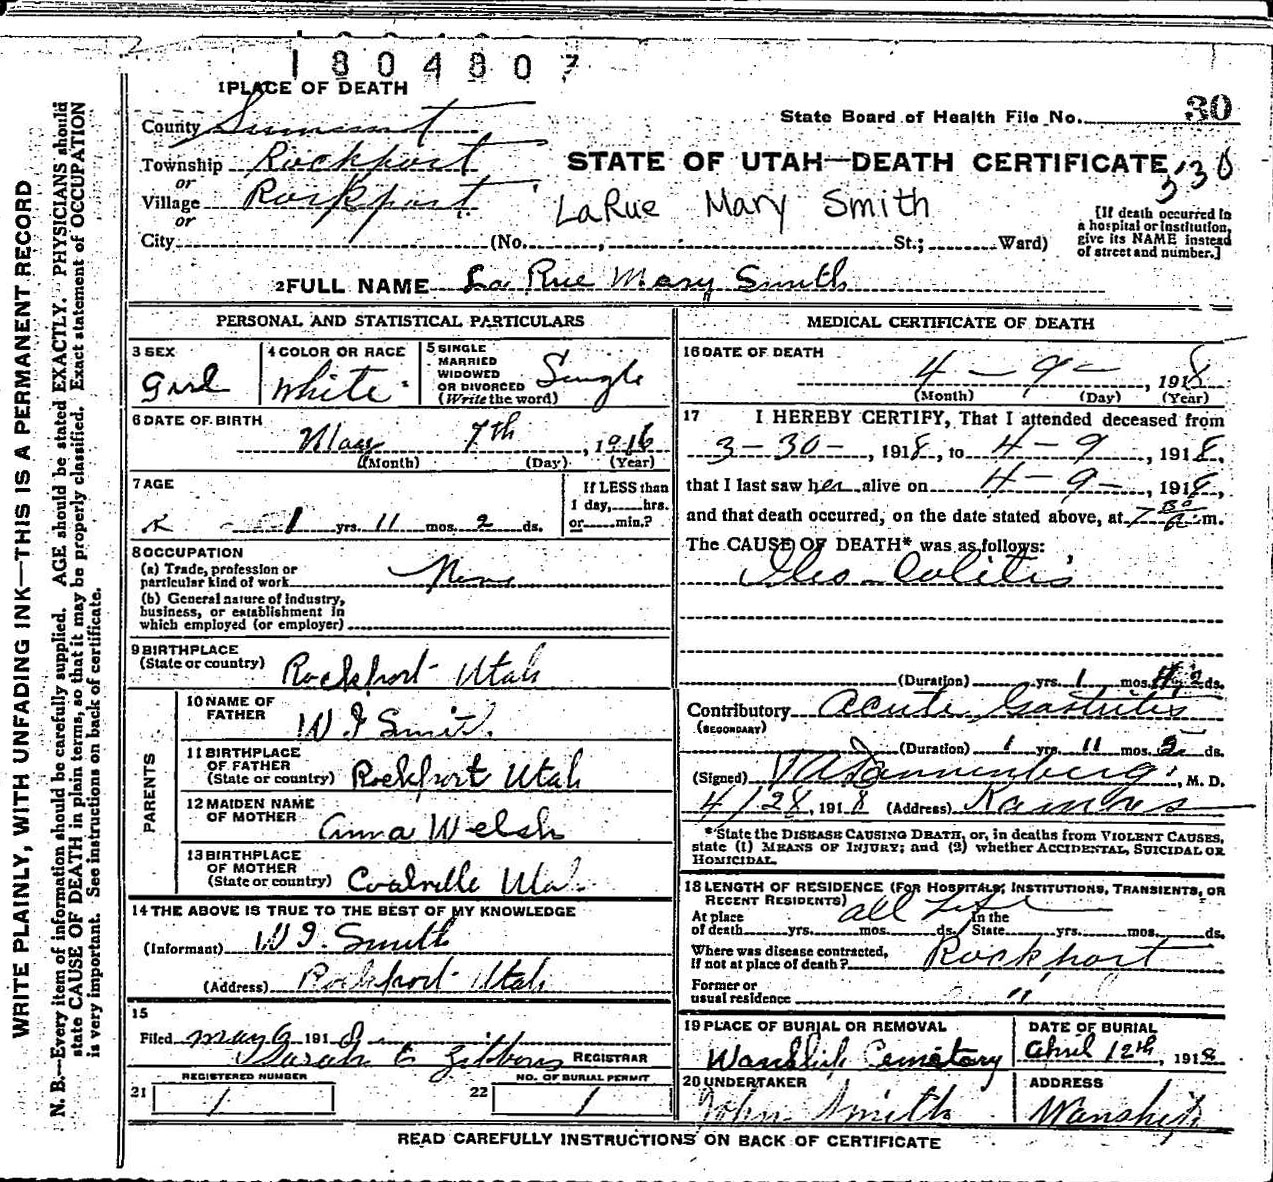 1804807
1 PLACE OF DEATH
State Board of Health File No. 30
County Summit
Township Rockport
STATE OF UTAH—DEATH CERTIFICATE
330
or
Village Rockport
LaRue Mary Smith
or
City (No. , St.; Ward)
[If death occurred in
a hospital or institution,
give its NAME instead
of street and number.]
2 FULL NAME La Rue Mary Smith
PERSONAL AND STATISTICAL PARTICULARS
3 SEX
Girl
4 COLOR OR RACE
White
5 SINGLE
MARRIED
WIDOWED
OR DIVORCED
(Write the word)
Single
6 DATE OF BIRTH
May 7th, 1916
(Month) (Day) (Year)
7 AGE
1 yrs. 11 mos. 2 ds.
If LESS than
1 day, hrs.
or min.?
8 OCCUPATION
(a) Trade, profession or
particular kind of work None
(b) General nature of industry,
business, or establishment in
which employed (or employer)
9 BIRTHPLACE
(State or country) Rockport Utah
PARENTS
10 NAME OF
FATHER W I Smith.
11 BIRTHPLACE
OF FATHER
(State or country) Rockport Utah
12 MAIDEN NAME
OF MOTHER Anna Welsh
13 BIRTHPLACE
OF MOTHER
(State or country) Coalville Utah
14 THE ABOVE IS TRUE TO THE BEST OF MY KNOWLEDGE
(Informant) W I. Smith
(Address) Rockport Utah
15
Filed May 6 1918
Sarah E Gibbons REGISTRAR
REGISTERED NUMBER
21 1
NO. OF BURIAL PERMIT
22 1
MEDICAL CERTIFICATE OF DEATH
16 DATE OF DEATH
4 - 9 - , 1918
(Month) (Day) (Year)
17 I HEREBY CERTIFY, That I attended deceased from
3-30-, 1918, to 4-9, 1918,
that I last saw her alive on 4-9-, 1918,
and that death occurred, on the date stated above, at 7 30 a m.
The CAUSE OF DEATH* was as follows:
Ileo-Colitis
(Duration) yrs. 1 mos. 2 ds.
Contributory Acute Gastritis
(SECONDARY)
(Duration) 1 yrs. 11 mos. 2 ds.
(Signed) Dannenberg, M. D.
4/28, 1918 (Address) Kamas
*State the DISEASE CAUSING DEATH, or, in deaths from VIOLENT CAUSES,
state (1) MEANS OF INJURY; and (2) whether ACCIDENTAL, SUICIDAL OR
HOMICIDAL.
18 LENGTH OF RESIDENCE (FOR HOSPITALS, INSTITUTIONS, TRANSIENTS, OR
RECENT RESIDENTS) all life
At place In the
of death yrs. mos. ds. State yrs. mos. ds.
Where was disease contracted,
if not at place of death? Rockport
Former or
usual residence "
19 PLACE OF BURIAL OR REMOVAL
Wanship Cemetary
DATE OF BURIAL
April 12th, 1918
20 UNDERTAKER
John Smith
ADDRESS
Wanship
READ CAREFULLY INSTRUCTIONS ON BACK OF CERTIFICATE
WRITE PLAINLY, WITH UNFADING INK—THIS IS A PERMANENT RECORD
N. B.—Every item of information should be carefully supplied. AGE should be stated EXACTLY. PHYSICIANS should
state CAUSE OF DEATH in plain terms, so that it may be properly classified. Exact statement of OCCUPATION
is very important. See instructions on back of certificate.